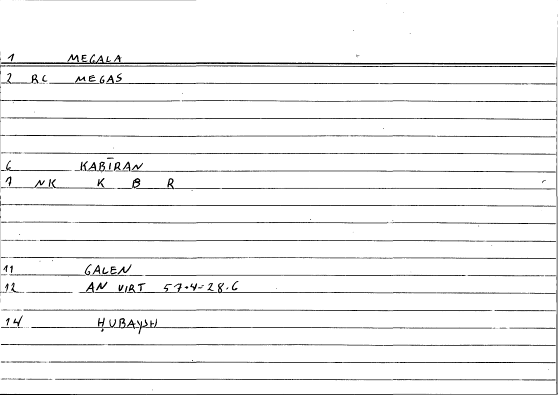 1 MEGALA
2 RC MEGAS
6 KABĪRAN
7 NK K B R
11 GALEN
12 AN VIRT 57.4=28.6
14 ḤUBAYSH